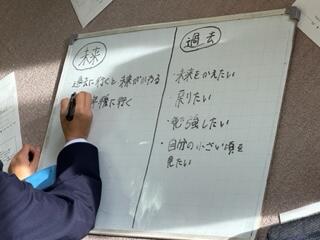 未来
過去に行くと未来がかわる
年後に行く
過去
・未来をかえたい
・戻りたい
・勉強したい
・自分の小さい頃を
見たい